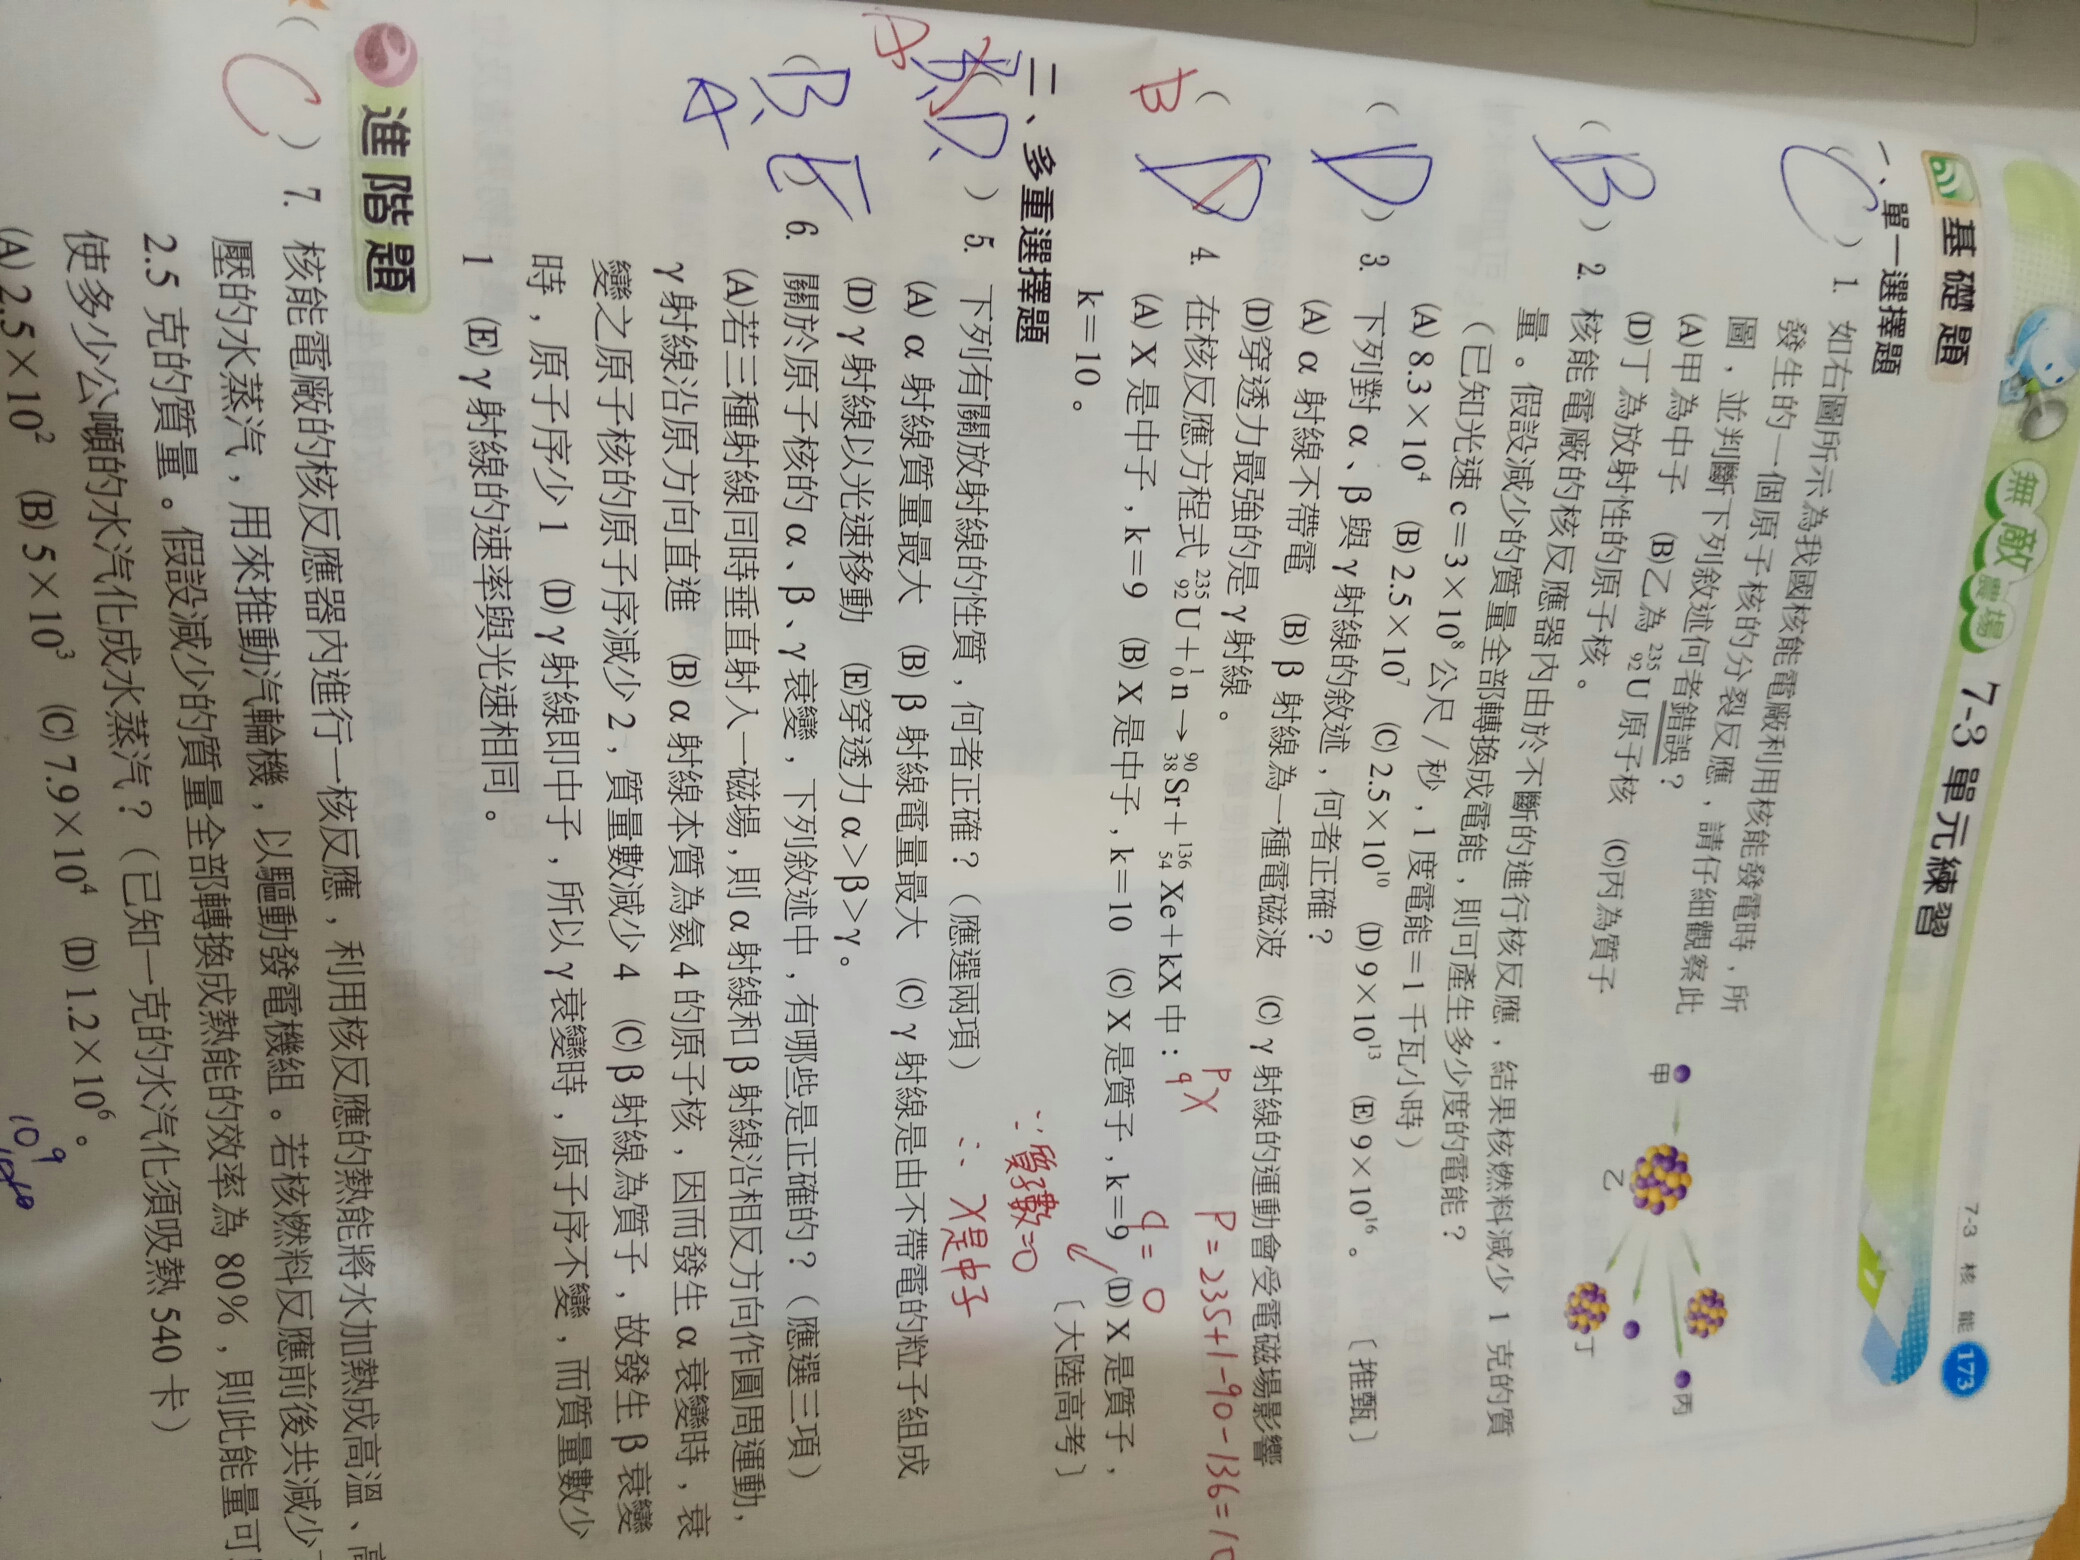 7-3 核 能 173
無敵農場 7-3 單元練習
基礎題
一、單一選擇題
( C ) 1. 如右圖所示為我國核能電廠利用核能發電時，所
發生的一個原子核的分裂反應，請仔細觀察此
圖，並判斷下列敘述何者錯誤？
(A)甲為中子 (B)乙為 ²³⁵₉₂U 原子核 (C)丙為質子
(D)丁為放射性的原子核。
甲
乙
丙
丁
( B ) 2. 核能電廠的核反應器內由於不斷的進行核反應，結果核燃料減少 1 克的質
量。假設減少的質量全部轉換成電能，則可產生多少度的電能？
（已知光速 c＝3×10⁸ 公尺／秒，1 度電能＝1 千瓦小時）
(A) 8.3×10⁴ (B) 2.5×10⁷ (C) 2.5×10¹⁰ (D) 9×10¹³ (E) 9×10¹⁶。 〔推甄〕
( D ) 3. 下列對 α、β 與 γ 射線的敘述，何者正確？
(A) α 射線不帶電 (B) β 射線為一種電磁波 (C) γ 射線的運動會受電磁場影響
(D)穿透力最強的是 γ 射線。
B ( D ) 4. 在核反應方程式 ²³⁵₉₂U＋¹₀n→⁹⁰₃₈Sr＋¹³⁶₅₄Xe＋kX 中：
(A) X 是中子，k＝9 (B) X 是中子，k＝10 (C) X 是質子，k＝9 (D) X 是質子，
k＝10。 〔大陸高考〕
ᴾqX
P=235+1-90-136=10
q=0
∵質子數=0
∴ X是中子
二、多重選擇題
A D ) 5. 下列有關放射線的性質，何者正確？（應選兩項）
(A) α 射線質量最大 (B) β 射線電量最大 (C) γ 射線是由不帶電的粒子組成
(D) γ 射線以光速移動 (E)穿透力 α＞β＞γ。
( B、E A 6. 關於原子核的 α、β、γ 衰變，下列敘述中，有哪些是正確的？（應選三項）
(A)若三種射線同時垂直射入一磁場，則 α 射線和 β 射線沿相反方向作圓周運動，
γ 射線沿原方向直進 (B) α 射線本質為氦 4 的原子核，因而發生 α 衰變時，衰
變之原子核的原子序減少 2，質量數減少 4 (C) β 射線為質子，故發生 β 衰變
時，原子序少 1 (D) γ 射線即中子，所以 γ 衰變時，原子序不變，而質量數少
1 (E) γ 射線的速率與光速相同。
進階題
( C ) 7. 核能電廠的核反應器內進行一核反應，利用核反應的熱能將水加熱成高溫、高
壓的水蒸汽，用來推動汽輪機，以驅動發電機組。若核燃料反應前後共減少
2.5 克的質量。假設減少的質量全部轉換成熱能的效率為 80%，則此能量可
使多少公噸的水汽化成水蒸汽？（已知一克的水汽化須吸熱 540 卡）
(A) 2.5×10² (B) 5×10³ (C) 7.9×10⁴ (D) 1.2×10⁶。
10⁹